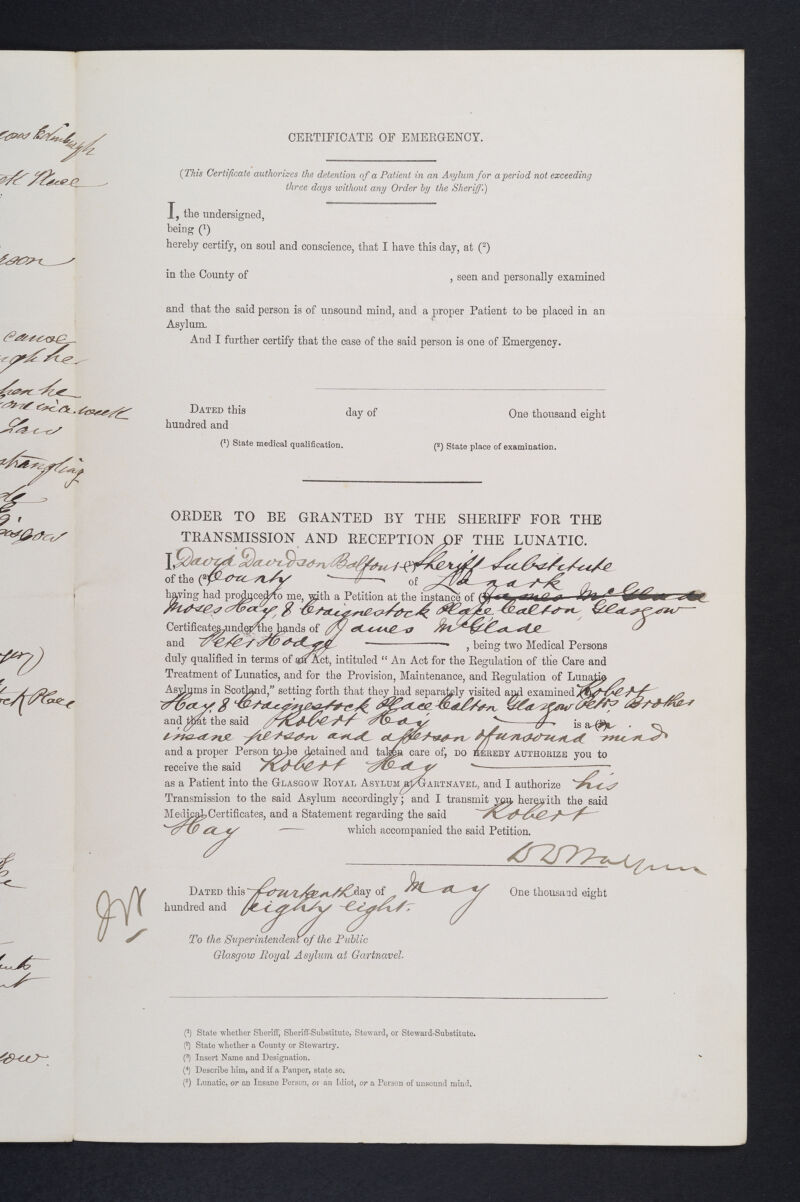 ious Edinburgh
Place
son
cause
gh he
hen he
ord in a week
Law
strangling
asgow
gery)
ock Place
ow
CERTIFICATE OF EMERGENCY.
(This Certificate authorizes the detention of a Patient in an Asylum for a period not exceeding
three days without any Order by the Sheriff.)
I, the undersigned,
being (¹)
hereby certify, on soul and conscience, that I have this day, at (²)
in the County of , seen and personally examined
and that the said person is of unsound mind, and a proper Patient to be placed in an
Asylum.
And I further certify that the case of the said person is one of Emergency.
DATED this day of One thousand eight
hundred and
(¹) State medical qualification. (²) State place of examination.
ORDER TO BE GRANTED BY THE SHERIFF FOR THE
TRANSMISSION AND RECEPTION OF THE LUNATIC.
I, David Davidson Balfour Sheriff Substitute
of the (²) County of Lanark
having had produced to me, with a Petition at the instance of (³) James McGlade
Moses Hay, 8 Craignestock Place Calton, Glasgow
Certificates under the hands of James McGlade
and Peter Hodge , being two Medical Persons
duly qualified in terms of an Act, intituled “ An Act for the Regulation of the Care and
Treatment of Lunatics, and for the Provision, Maintenance, and Regulation of Lunatic
Asylums in Scotland,” setting forth that they had separately visited and examined (⁴) Robert
Hay, 8 Craignestock Place Calton Glasgow Petrs Brother
and that the said Robert Hay is a (⁵)
insane person and a person of unsound mind
and a proper Person to be detained and taken care of, DO HEREBY AUTHORIZE you to
receive the said Robert Hay
as a Patient into the GLASGOW ROYAL ASYLUM at GARTNAVEL, and I authorize his
Transmission to the said Asylum accordingly; and I transmit you herewith the said
Medical Certificates, and a Statement regarding the said Robert
Hay which accompanied the said Petition.
DATED this fourteenth day of May One thousand eight
hundred and eighty eight.
To the Superintendent of the Public
Glasgow Royal Asylum at Gartnavel.
(¹) State whether Sheriff, Sheriff-Substitute, Steward, or Steward-Substitute.
(²) State whether a County or Stewartry.
(³) Insert Name and Designation.
(⁴) Describe him, and if a Pauper, state so.
(⁵) Lunatic, or an Insane Person, or an Idiot, or a Person of unsound mind.